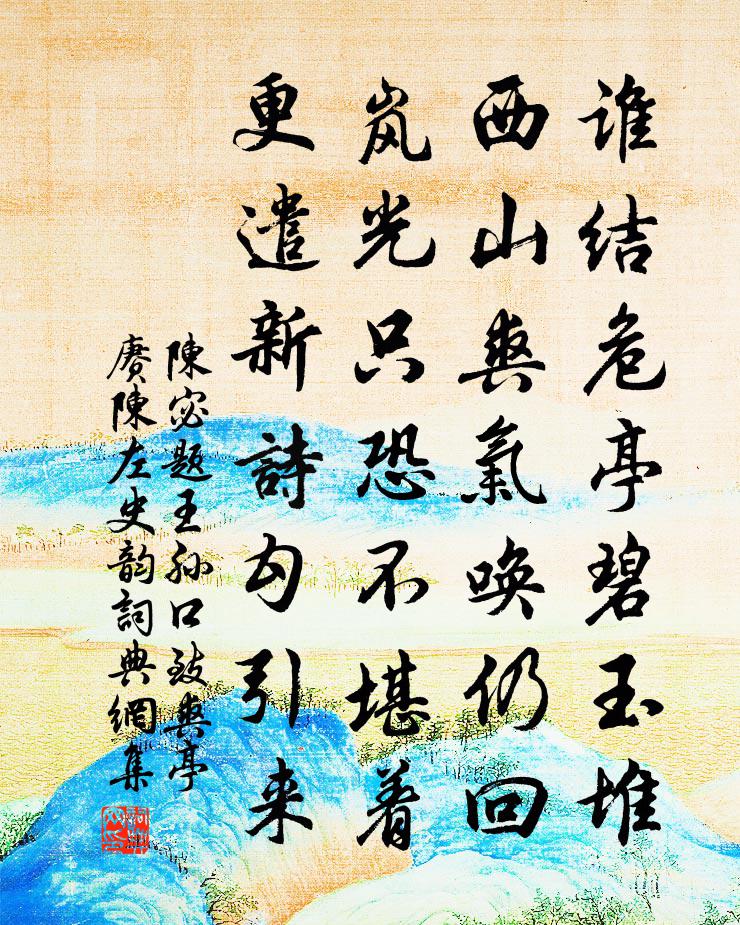 谁结危亭碧玉堆
西山爽氣唤仍回
岚光只恐不堪着
更遣新詩勾引来
陳宓题王孙口致爽亭
赓陳左史韵詞典網集